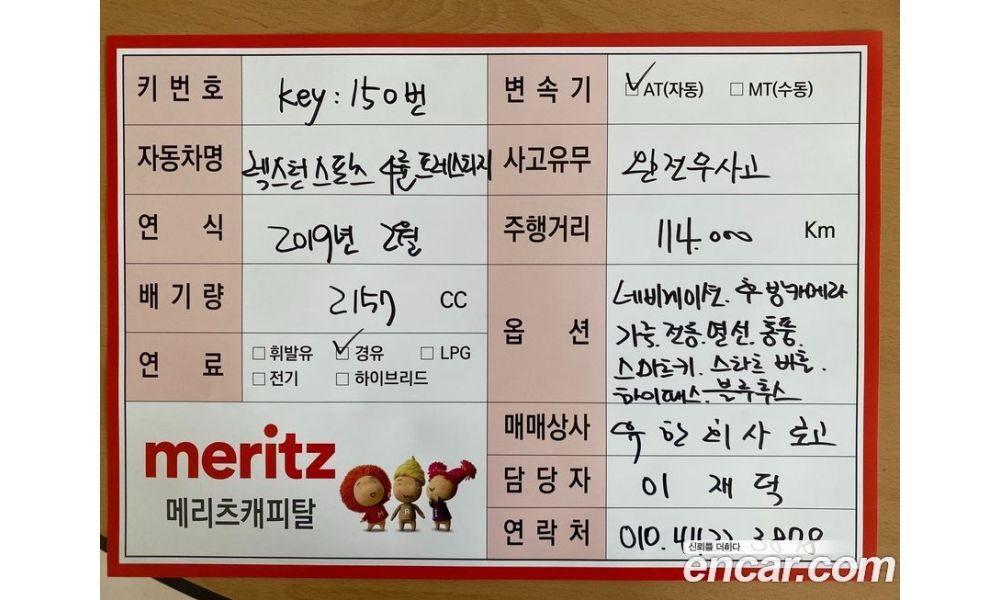 키번호 key : 150번 변속기 ☑AT(자동) ☐MT(수동)
자동차명 렉스턴스포츠 4륜 프레스티지 사고유무 완전무사고
연식 2019년 2월 주행거리 114.000 Km
배기량 2157 CC 옵션 네비게이션. 후방카메라
가죽.전동.열선.통풍.
스마트키. 스타트 버튼.
하이패스. 블루투스
연료 ☐휘발유 ☑경유 ☐LPG
☐전기 ☐하이브리드
매매상사
담당자 이재덕
연락처 010.
meritz
메리츠캐피탈
신뢰를 더하다
encar.com